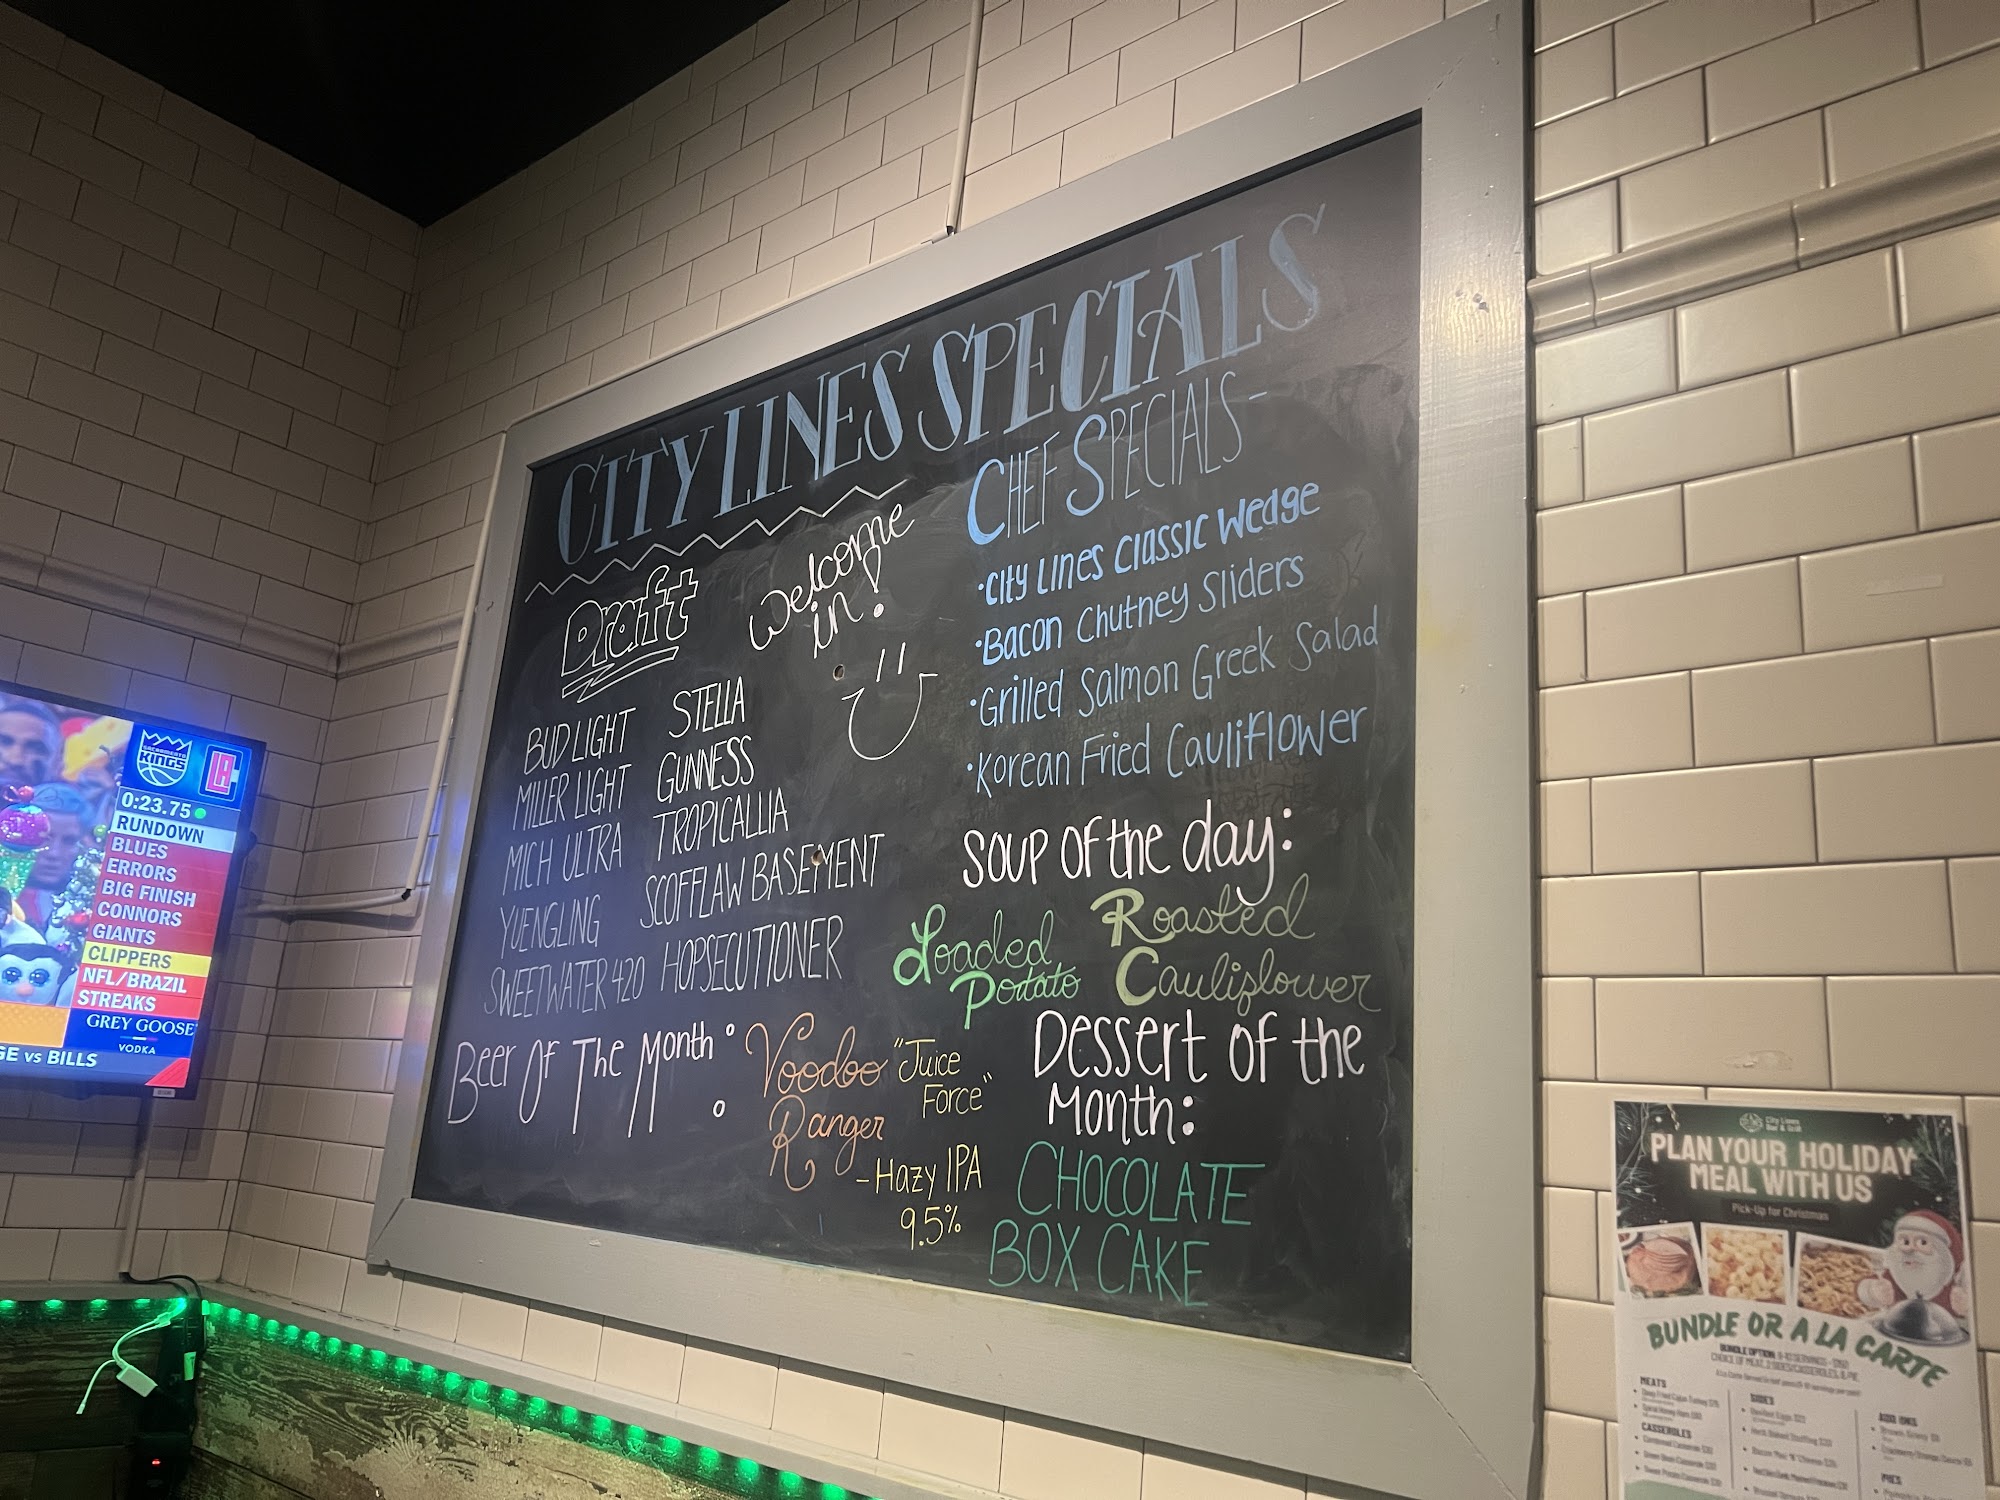 CITY LINES SPECIALS
Draft
Welcome
in!
BUD LIGHT
MILLER LIGHT
MICH ULTRA
YUENGLING
SWEETWATER 420
STELLA
GUNNESS
TROPICALLIA
SCOFFLAW BASEMENT
HOPSECUTIONER
CHEF SPECIALS-
•City Lines Classic Wedge
•Bacon Chutney Sliders
•Grilled Salmon Greek Salad
•Korean Fried Cauliflower
Soup of the day:
Loaded
Potato
Roasted
Cauliflower
Beer Of The Month:
Voodoo
Ranger
"Juice
Force"
-Hazy IPA
9.5%
Dessert of the
Month:
CHOCOLATE
BOX CAKE
SACRAMENTO
KINGS
LA
0:23.75
RUNDOWN
BLUES
ERRORS
BIG FINISH
CONNORS
GIANTS
CLIPPERS
NFL/BRAZIL
STREAKS
GREY GOOSE
VODKA
GE vs BILLS
City Lines
Bar & Grill
PLAN YOUR HOLIDAY
MEAL WITH US
Pick-Up for Christmas
BUNDLE OR A LA CARTE
MEATS
CASSEROLES
SIDES
ADD ONS
PIES